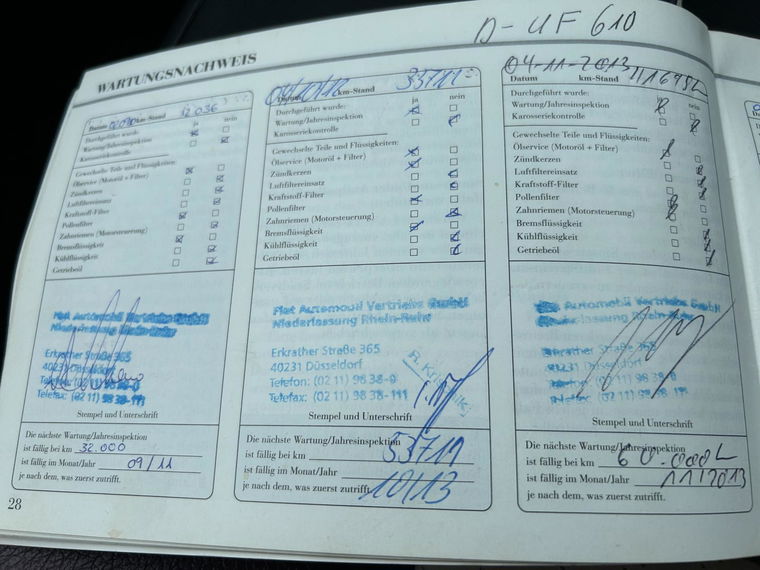 D-UF 610
WARTUNGSNACHWEIS
Datum km-Stand 12 036
ja nein
Durchgeführt wurde:
Wartung/Jahresinspektion
Karosseriekontrolle
Gewechselte Teile und Flüssigkeiten:
Ölservice (Motoröl + Filter)
Zündkerzen
Luftfiltereinsatz
Kraftstoff-Filter
Pollenfilter
Zahnriemen (Motorsteuerung)
Bremsflüssigkeit
Kühlflüssigkeit
Getriebeöl
Fiat Automobil Vertriebs GmbH
Niederlassung Rhein-Ruhr
Erkrather Straße 365
40231 Düsseldorf
Telefon: (02 11) 98 38-0
Telefax: (02 11) 98 38-111
Stempel und Unterschrift
Die nächste Wartung/Jahresinspektion
ist fällig bei km 32.000
ist fällig im Monat/Jahr 09/11
je nach dem, was zuerst zutrifft.
28
04/10/12 33711
Datum km-Stand
ja nein
Durchgeführt wurde:
Wartung/Jahresinspektion
Karosseriekontrolle
Gewechselte Teile und Flüssigkeiten:
Ölservice (Motoröl + Filter)
Zündkerzen
Luftfiltereinsatz
Kraftstoff-Filter
Pollenfilter
Zahnriemen (Motorsteuerung)
Bremsflüssigkeit
Kühlflüssigkeit
Getriebeöl
Fiat Automobil Vertriebs GmbH
Niederlassung Rhein-Ruhr
Erkrather Straße 365
40231 Düsseldorf
Telefon: (02 11) 98 38-0
Telefax: (02 11) 98 38-111
Stempel und Unterschrift
Die nächste Wartung/Jahresinspektion
ist fällig bei km 53711
ist fällig im Monat/Jahr 10/13
je nach dem, was zuerst zutrifft.
04-11-2013
Datum km-Stand
ja nein
Durchgeführt wurde:
Wartung/Jahresinspektion
Karosseriekontrolle
Gewechselte Teile und Flüssigkeiten:
Ölservice (Motoröl + Filter)
Zündkerzen
Luftfiltereinsatz
Kraftstoff-Filter
Pollenfilter
Zahnriemen (Motorsteuerung)
Bremsflüssigkeit
Kühlflüssigkeit
Getriebeöl
Automobil Vertriebs GmbH
Niederlassung Rhein-Ruhr
Erkrather Straße 365
40231 Düsseldorf
Telefon: (02 11) 98 38-0
Telefax: (02 11) 98 38-111
Stempel und Unterschrift
Die nächste Wartung/Jahresinspektion
ist fällig bei km 60.000
ist fällig im Monat/Jahr 11/2013
je nach dem, was zuerst zutrifft.